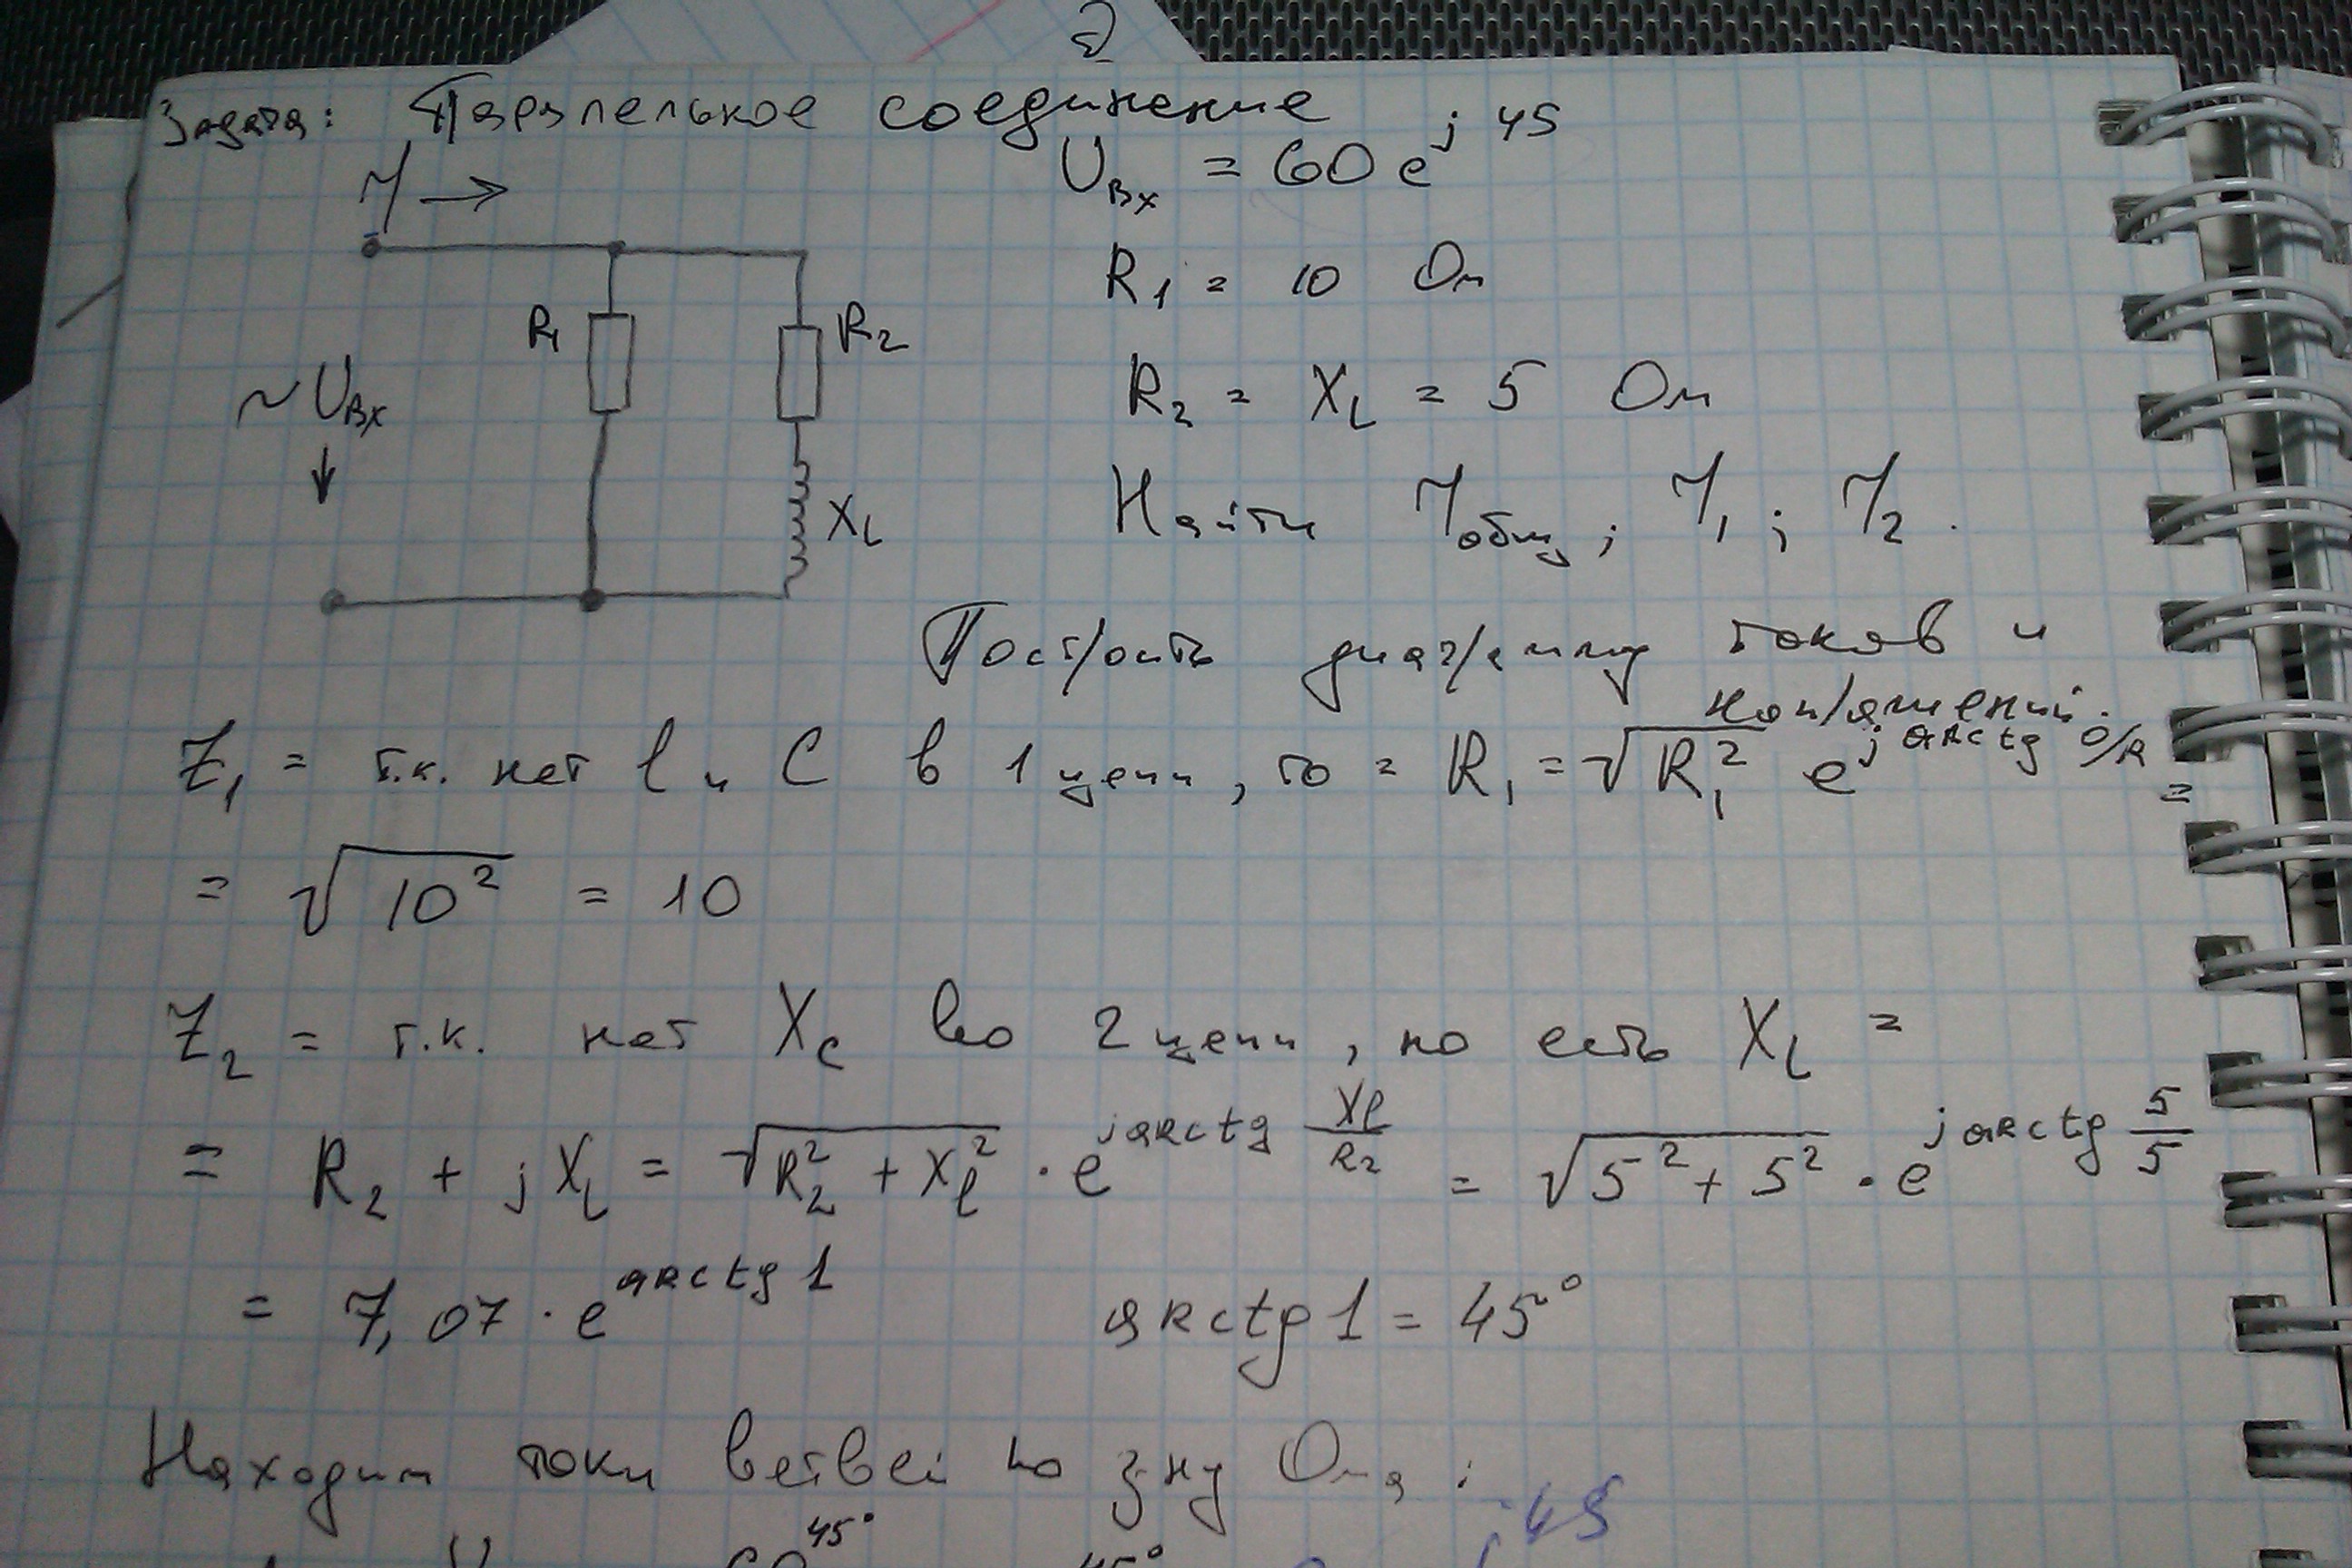 Задача: Параллельное соединение
I →
U_вх = 60 e^{j 45}
R_1 = 10 Ом
R_1
R_2
~ U_вх
↓
R_2 = X_L = 5 Ом
X_L
Найти I_общ ; I_1 ; I_2 .
Построить диаграмму токов и
напряжений.
Z_1 = т.к. нет L и C в 1 цепи, то = R_1 = √(R_1^2) e^{j arctg 0/R} =
= √(10^2) = 10
Z_2 = т.к. нет X_c во 2 цепи, но есть X_L =
= R_2 + j X_L = √(R_2^2 + X_l^2) · e^{j arctg X_l/R_2} = √(5^2 + 5^2) · e^{j arctg 5/5}
= 7,07 · e^{arctg 1} arctg 1 = 45°
Находим токи ветвей по з-ну Ома :
U 60^{45°} 45° j 45